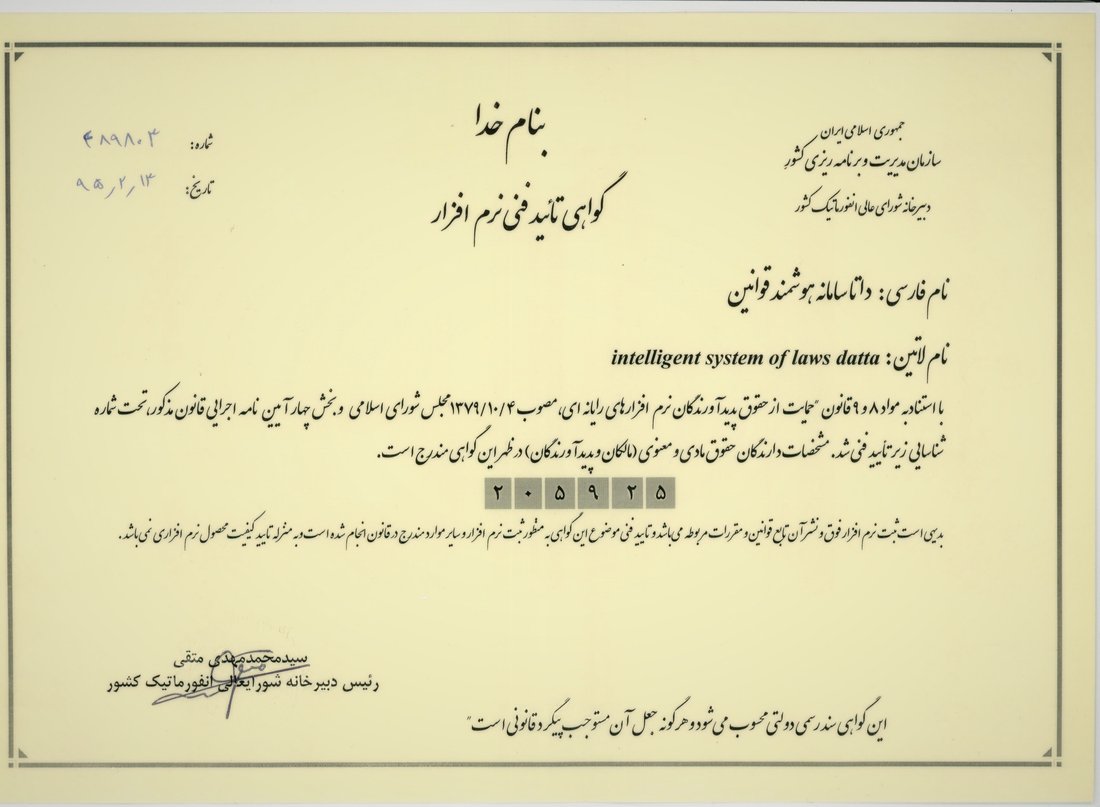 بنام خدا
جمهوری اسلامی ایران
سازمان مدیریت و برنامه ریزی کشور
دبیرخانه شورای عالی انفورماتیک کشور
شماره: ۴۸۹۸۰۳
تاریخ: ۹۵/۲/۱۳
گواهی تائید فنی نرم افزار
نام فارسی: داتا سامانه هوشمند قوانین
نام لاتین: intelligent system of laws datta
با استناد به مواد ۸ و ۹ قانون "حمایت از حقوق پدیدآورندگان نرم افزارهای رایانه ای، مصوب ۱۳۷۹/۱۰/۴ مجلس شورای اسلامی و بخش چهار آیین نامه اجرایی قانون مذکور، تحت شماره
شناسایی زیر تأیید فنی شد. مشخصات دارندگان حقوق مادی و معنوی (مالکان و پدیدآورندگان) در ظهر این گواهی مندرج است.
۲۰۵۹۲۵
بدیهی است ثبت نرم افزار فوق و نشر آن تابع قوانین و مقررات مربوطه می باشد و تایید فنی موضوع این گواهی به منظور ثبت نرم افزار و سایر موارد مندرج در قانون انجام شده است و به منزله تایید کیفیت محصول نرم افزاری نمی باشد.
سیدمحمدمهدی متقی
رئیس دبیرخانه شورایعالی انفورماتیک کشور
این گواهی سند رسمی دولتی محسوب می شود و هر گونه جعل آن مستوجب پیگرد قانونی است"